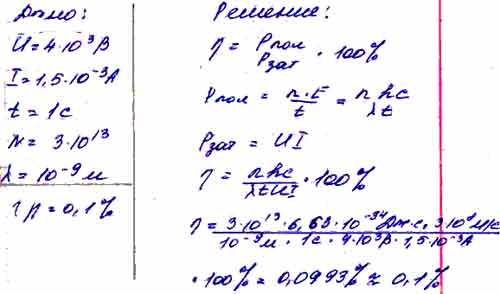 Дано:
U = 4·10³ В
I = 1,5·10⁻³ А
t = 1 с
n = 3·10¹³
λ = 10⁻⁹ м
η = 0,1%
Решение:
η = Pпол / Pзат · 100%
Pпол = n·E / t = nhc / λt
Pзат = UI
η = nhc / λtUI · 100%
η = 3·10¹³·6,63·10⁻³⁴ Дж·с·3·10⁸ м/с / 10⁻⁹ м·1с·4·10³ В·1,5·10⁻³ А
·100% = 0,0993% ≈ 0,1%